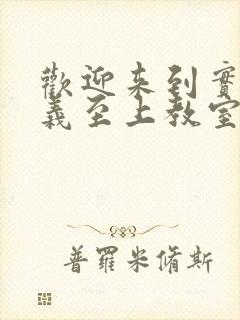 歡迎來到實
義至上教室
普羅米脩斯